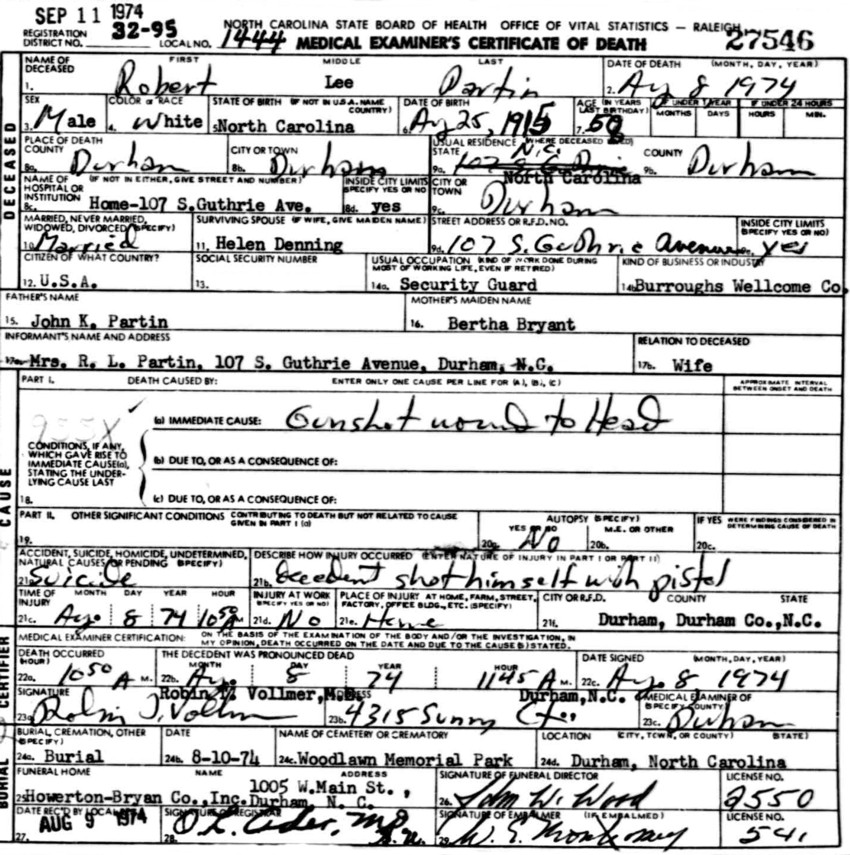 SEP 11 1974
NORTH CAROLINA STATE BOARD OF HEALTH OFFICE OF VITAL STATISTICS — RALEIGH
REGISTRATION DISTRICT NO. 32-95 LOCAL NO. 1444 MEDICAL EXAMINER'S CERTIFICATE OF DEATH 27546
DECEASED
NAME OF DECEASED FIRST MIDDLE LAST DATE OF DEATH (MONTH, DAY, YEAR)
1. Robert Lee Partin 2. Aug 8 1974
SEX COLOR or RACE STATE OF BIRTH (IF NOT IN U.S.A. NAME COUNTRY) DATE OF BIRTH AGE (IN YEARS LAST BIRTHDAY) IF UNDER 1 YEAR IF UNDER 24 HOURS
3. Male 4. White 5. North Carolina 6. Aug 25, 1915 7. MONTHS DAYS HOURS MIN.
PLACE OF DEATH COUNTY CITY OR TOWN USUAL RESIDENCE (WHERE DECEASED LIVED) STATE COUNTY
8a. Durham 8b. Durham 9a. N.C. North Carolina 9b. Durham
NAME OF HOSPITAL OR INSTITUTION (IF NOT IN EITHER, GIVE STREET AND NUMBER) INSIDE CITY LIMITS (SPECIFY YES OR NO) CITY OR TOWN
8c. Home-107 S.Guthrie Ave. 8d. yes 9c. Durham
MARRIED, NEVER MARRIED, WIDOWED, DIVORCED (SPECIFY) SURVIVING SPOUSE (IF WIFE, GIVE MAIDEN NAME) STREET ADDRESS OR R.F.D. NO. INSIDE CITY LIMITS (SPECIFY YES OR NO)
10. Married 11. Helen Denning 9d. 107 S. Guthrie Avenue 9e. yes
CITIZEN OF WHAT COUNTRY? SOCIAL SECURITY NUMBER USUAL OCCUPATION (KIND OF WORK DONE DURING MOST OF WORKING LIFE, EVEN IF RETIRED) KIND OF BUSINESS OR INDUSTRY
12. U.S.A. 13. 14a. Security Guard 14b. Burroughs Wellcome Co.
FATHER'S NAME MOTHER'S MAIDEN NAME
15. John K. Partin 16. Bertha Bryant
INFORMANT'S NAME AND ADDRESS RELATION TO DECEASED
17a. Mrs. R. L. Partin, 107 S. Guthrie Avenue, Durham, N.C. 17b. Wife
CAUSE
PART I. DEATH CAUSED BY: ENTER ONLY ONE CAUSE PER LINE FOR (A), (B), (C) APPROXIMATE INTERVAL BETWEEN ONSET AND DEATH
955X
(a) IMMEDIATE CAUSE: Gunshot wound to Head
CONDITIONS, IF ANY, WHICH GAVE RISE TO IMMEDIATE CAUSE(a), STATING THE UNDERLYING CAUSE LAST
(b) DUE TO, OR AS A CONSEQUENCE OF:
18. (c) DUE TO, OR AS A CONSEQUENCE OF:
PART II. OTHER SIGNIFICANT CONDITIONS CONTRIBUTING TO DEATH BUT NOT RELATED TO CAUSE GIVEN IN PART I (a) AUTOPSY (SPECIFY) YES or NO M.E. OR OTHER IF YES WERE FINDINGS CONSIDERED IN DETERMINING CAUSE OF DEATH
19. 20a. No 20b. 20c.
ACCIDENT, SUICIDE, HOMICIDE, UNDETERMINED, NATURAL CAUSES OR PENDING (SPECIFY) DESCRIBE HOW INJURY OCCURRED (ENTER NATURE OF INJURY IN PART I OR PART II)
21a. Suicide 21b. Decedent shot himself with pistol
TIME OF INJURY MONTH DAY YEAR HOUR INJURY AT WORK (SPECIFY YES OR NO) PLACE OF INJURY AT HOME, FARM, STREET, FACTORY, OFFICE BLDG., ETC. (SPECIFY) CITY OR R.F.D. COUNTY STATE
21c. Aug. 8 74 1050 A 21d. No 21e. Home 21f. Durham, Durham Co.,N.C.
CERTIFIER
MEDICAL EXAMINER CERTIFICATION: ON THE BASIS OF THE EXAMINATION OF THE BODY AND/OR THE INVESTIGATION, IN MY OPINION, DEATH OCCURRED ON THE DATE AND DUE TO THE CAUSE(S) STATED.
DEATH OCCURRED (HOUR) THE DECEDENT WAS PRONOUNCED DEAD MONTH DAY YEAR HOUR DATE SIGNED (MONTH, DAY, YEAR)
22a. 1050 A M. 22b. Aug. 8 74 1145 A M. 22c. Aug. 8 1974
SIGNATURE Robin Vollmer, Durham,N.C. MEDICAL EXAMINER OF (SPECIFY COUNTY)
23a. Robin J. Vollmer 23b. 4315 Sunny 23c. Durham
BURIAL
BURIAL, CREMATION, OTHER (SPECIFY) DATE NAME OF CEMETERY OR CREMATORY LOCATION (CITY, TOWN, OR COUNTY) STATE)
24a. Burial 24b. 8-10-74 24c. Woodlawn Memorial Park 24d. Durham, North Carolina
FUNERAL HOME NAME ADDRESS SIGNATURE OF FUNERAL DIRECTOR LICENSE NO.
25. Howerton-Bryan Co.,Inc. 1005 W.Main St., Durham, N. C. 26. W. Wood 2550
DATE REC'D BY LOCAL REG. SIGNATURE OF REGISTRAR SIGNATURE OF EMBALMER (IF EMBALMED) LICENSE NO.
27. AUG 9 1974 28. 29. 541